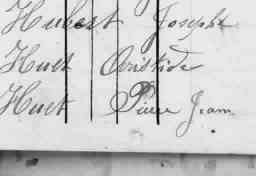 Hubert Joseph
Huet Aristide
Huet Pierre Jean